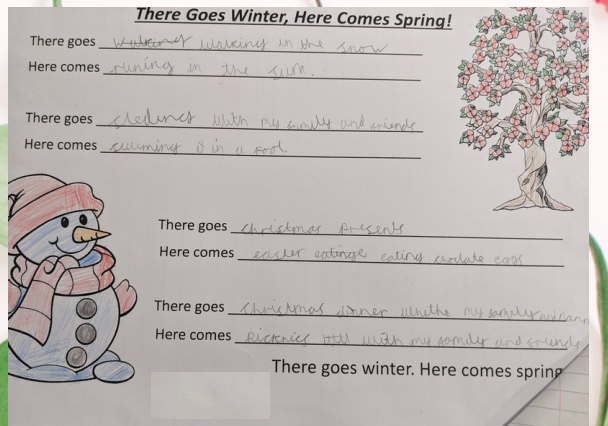 There Goes Winter, Here Comes Spring!
There goes walking in the snow
Here comes runing in the sun.
There goes sledincg with my family and friends
Here comes swimming it in a pool.
There goes christmas presents
Here comes easter eating choclate eggs
There goes christmas dinner my family and
Here comes Picknics with my family and friends
There goes winter. Here comes spring